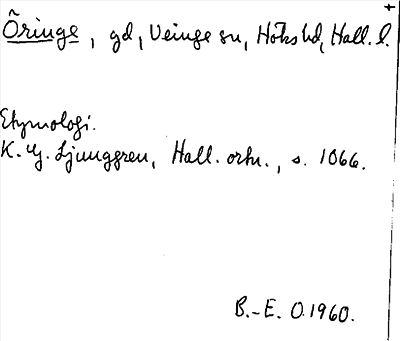 Öringe, gd, Veinge sn, Höks hd, Hall. l.
Etymologi.
K. G. Ljunggren, Hall. ortn., s. 1066.
B.-E. O. 1960.